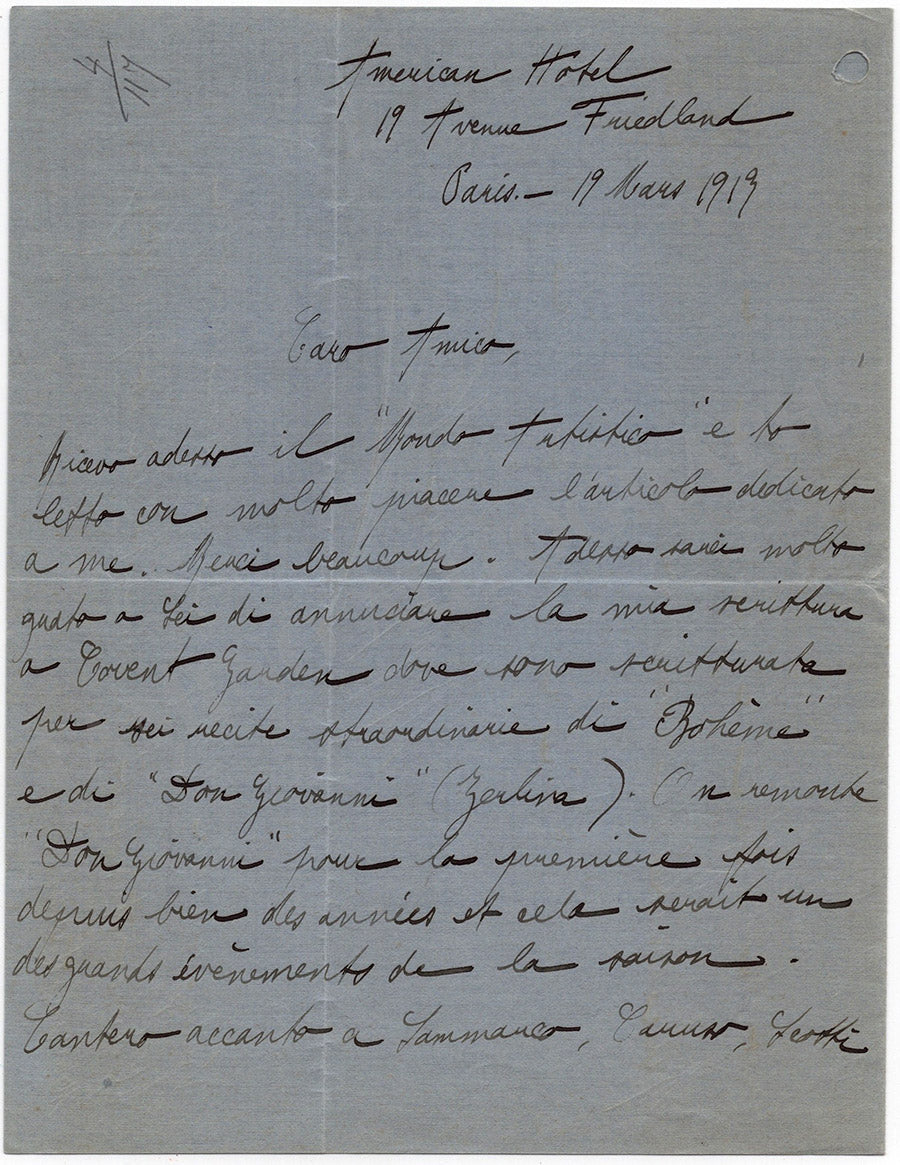 4/117
American Hotel
19 Avenue Friedland
Paris. — 19 Mars 1913
Caro Amico,
Ricevo adesso il "Mondo Artistico" e ho
letto con molto piacere l'articolo dedicato
a me. Merci beaucoup. Adesso sarei molto
grato a Lei di annuciare la mia scrittura
a Covent Garden dove sono scritturata
per sei recite straordinarie di "Bohême"
e di "Don Giovanni" (Zerlina). On remonte
"Don Giovanni" pour la première fois
depuis bien des années et cela serait un
des grands évènements de la saison.
Cantero accanto a Sammarco, Caruso, Scotti